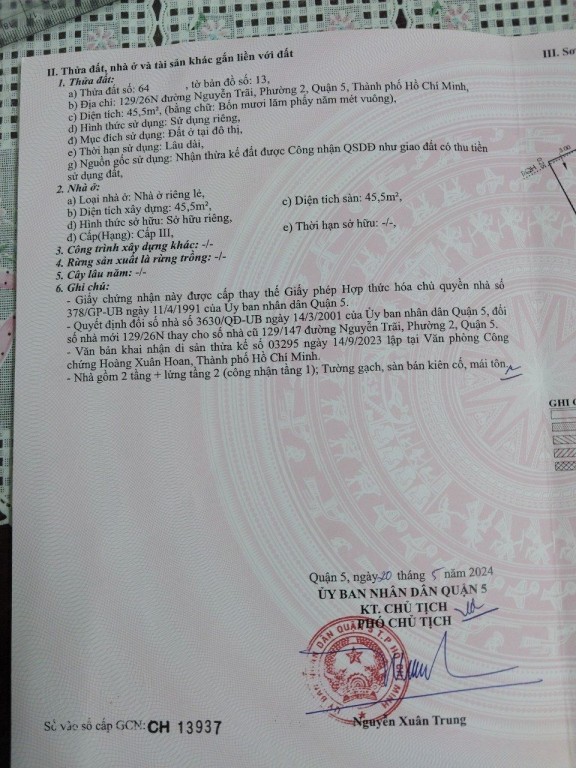 II. Thửa đất, nhà ở và tài sản khác gắn liền với đất
III. Sơ
1. Thửa đất:
a) Thửa đất số: 64 , tờ bản đồ số: 13,
b) Địa chỉ: 129/26N đường Nguyễn Trãi, Phường 2, Quận 5, Thành phố Hồ Chí Minh,
c) Diện tích: 45,5m², (bằng chữ: Bốn mươi lăm phẩy năm mét vuông),
d) Hình thức sử dụng: Sử dụng riêng,
đ) Mục đích sử dụng: Đất ở tại đô thị,
e) Thời hạn sử dụng: Lâu dài,
g) Nguồn gốc sử dụng: Nhận thừa kế đất được Công nhận QSDĐ như giao đất có thu tiền
sử dụng đất,
2. Nhà ở:
a) Loại nhà ở: Nhà ở riêng lẻ,
b) Diện tích xây dựng: 45,5m², c) Diện tích sàn: 45,5m²,
d) Hình thức sở hữu: Sở hữu riêng,
đ) Cấp(Hạng): Cấp III, e) Thời hạn sở hữu: -/-,
3. Công trình xây dựng khác: -/-
4. Rừng sản xuất là rừng trồng: -/-
5. Cây lâu năm: -/-
6. Ghi chú:
- Giấy chứng nhận này được cấp thay thế Giấy phép Hợp thức hóa chủ quyền nhà số
378/GP-UB ngày 11/4/1991 của Ủy ban nhân dân Quận 5.
- Quyết định đổi số nhà số 3630/QĐ-UB ngày 14/3/2001 của Ủy ban nhân dân Quận 5, đổi
số nhà mới 129/26N thay cho số nhà cũ 129/147 đường Nguyễn Trãi, Phường 2, Quận 5.
- Văn bản khai nhận di sản thừa kế số 03295 ngày 14/9/2023 lập tại Văn phòng Công
chứng Hoàng Xuân Hoan, Thành phố Hồ Chí Minh.
- Nhà gồm 2 tầng + lửng tầng 2 (công nhận tầng 1); Tường gạch, sàn bán kiên cố, mái tôn
GHI
Quận 5, ngày 20 tháng 5 năm 2024
ỦY BAN NHÂN DÂN QUẬN 5
KT. CHỦ TỊCH
PHÓ CHỦ TỊCH
ỦY BAN NHÂN DÂN QUẬN 5 T.P HỒ CHÍ MINH
Nguyễn Xuân Trung
Số vào sổ cấp GCN: CH 13937